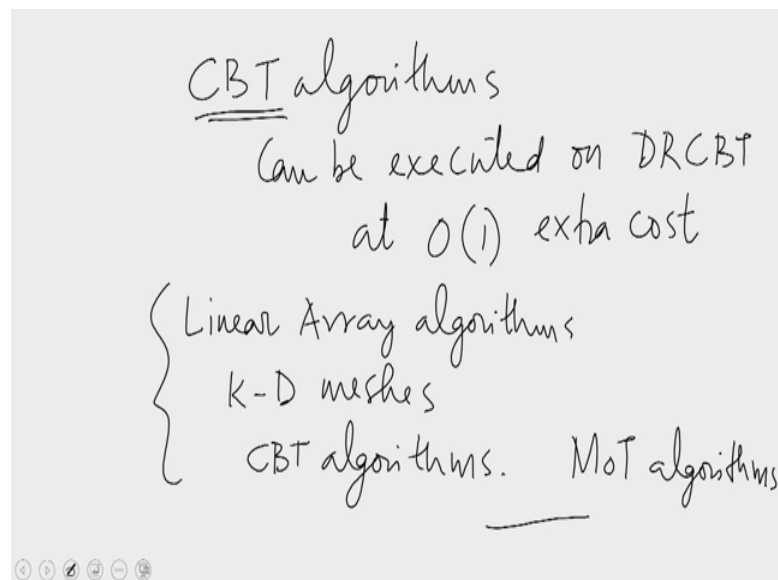 CBT algorithms
Can be executed on DRCBT
at O(1) extra cost
Linear Array algorithms
K-D meshes
CBT algorithms. MoT algorithms